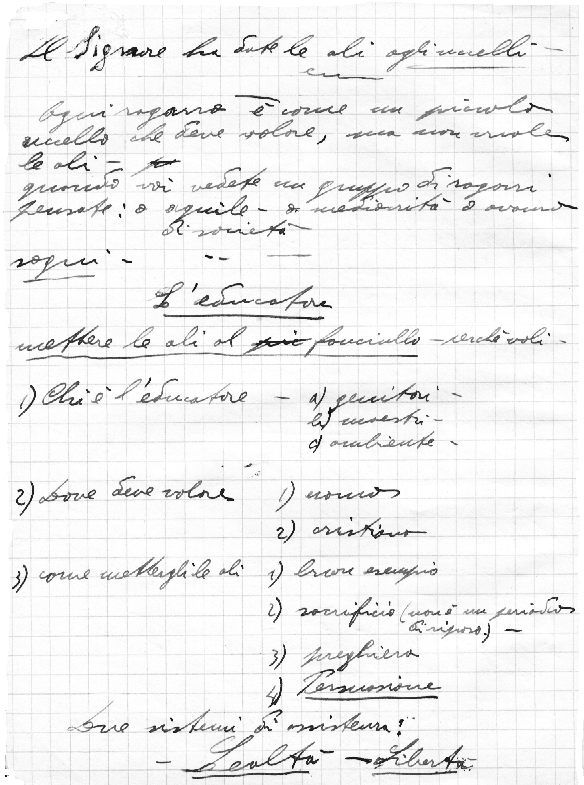 Il Signore ha dato le ali agli uccelli -
Ogni ragazzo è come un piccolo
uccello che deve volare, ma non vuole
le ali -
quando voi vedete un gruppo di ragazzi
pensate: o aquile - o mediocrità o avanzi
di società
sogni -
L'educatore
mettere le ali al più fanciullo - perché voli -
1) Chi è l'educatore - a) genitori -
b) maestri -
c) ambiente -
2) Dove deve volare 1) uomo
2) cristiano
3) come mettergli le ali 1) buon esempio
2) sacrificio (non è un periodo
di riposo.) -
3) preghiera
4) Persuasione
Due sistemi di assistenza:
- Lealtà - Libertà